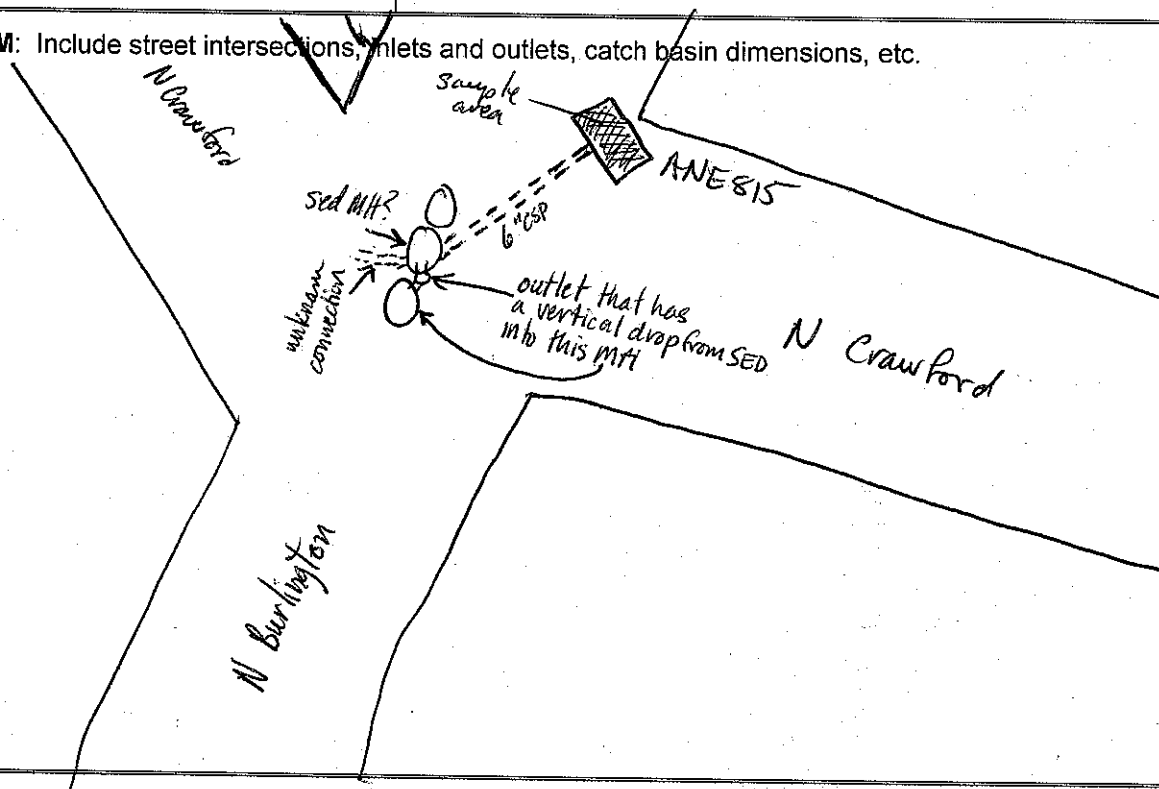 M: Include street intersections, inlets and outlets, catch basin dimensions, etc.
N Crawford
Sample
area
ANE815
sed MH?
6" CSP
unknown
connection
outlet that has
a vertical drop from SED
into this MH
N Crawford
N Burlington